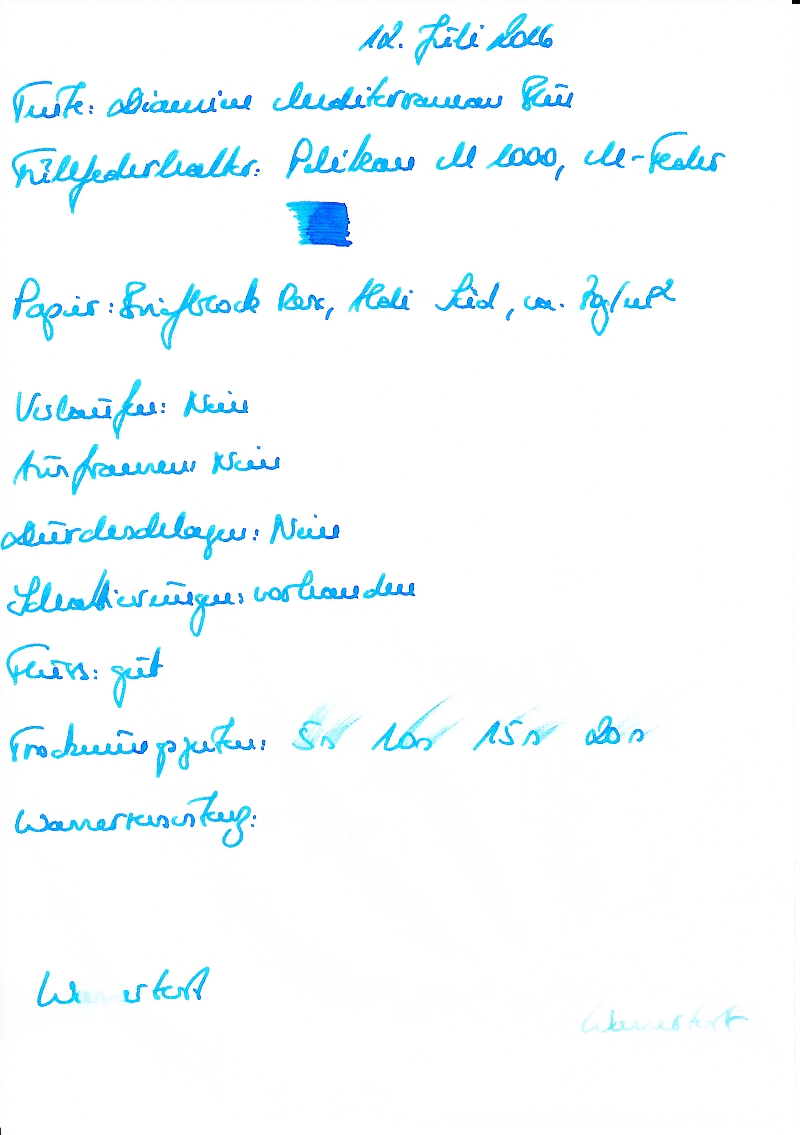 12. Juli 2016
Tinte: Diamine Mediterranean Blue
Füllfederhalter: Pelikan M 1000, M-Feder
Papier: Briefblock Rex, Aldi Süd, ca. 7g/m²
Verlaufen: Nein
Ausfransen Nein
Durchschlagen: Nein
Schattierungen: vorhanden
Fluss: gut
Trocknungszeiten: 5s 10s 15s 20s
Wasserfestigkeit:
Wassertest
Wassertest